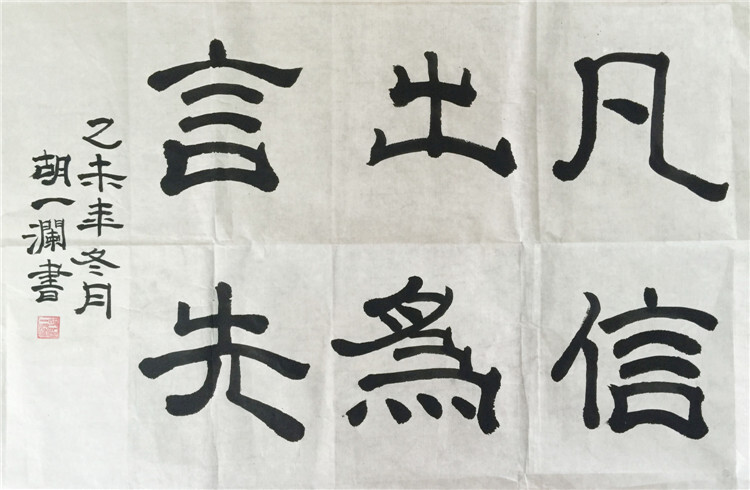 凡出言
信為先
乙未年冬月
胡一瀾書